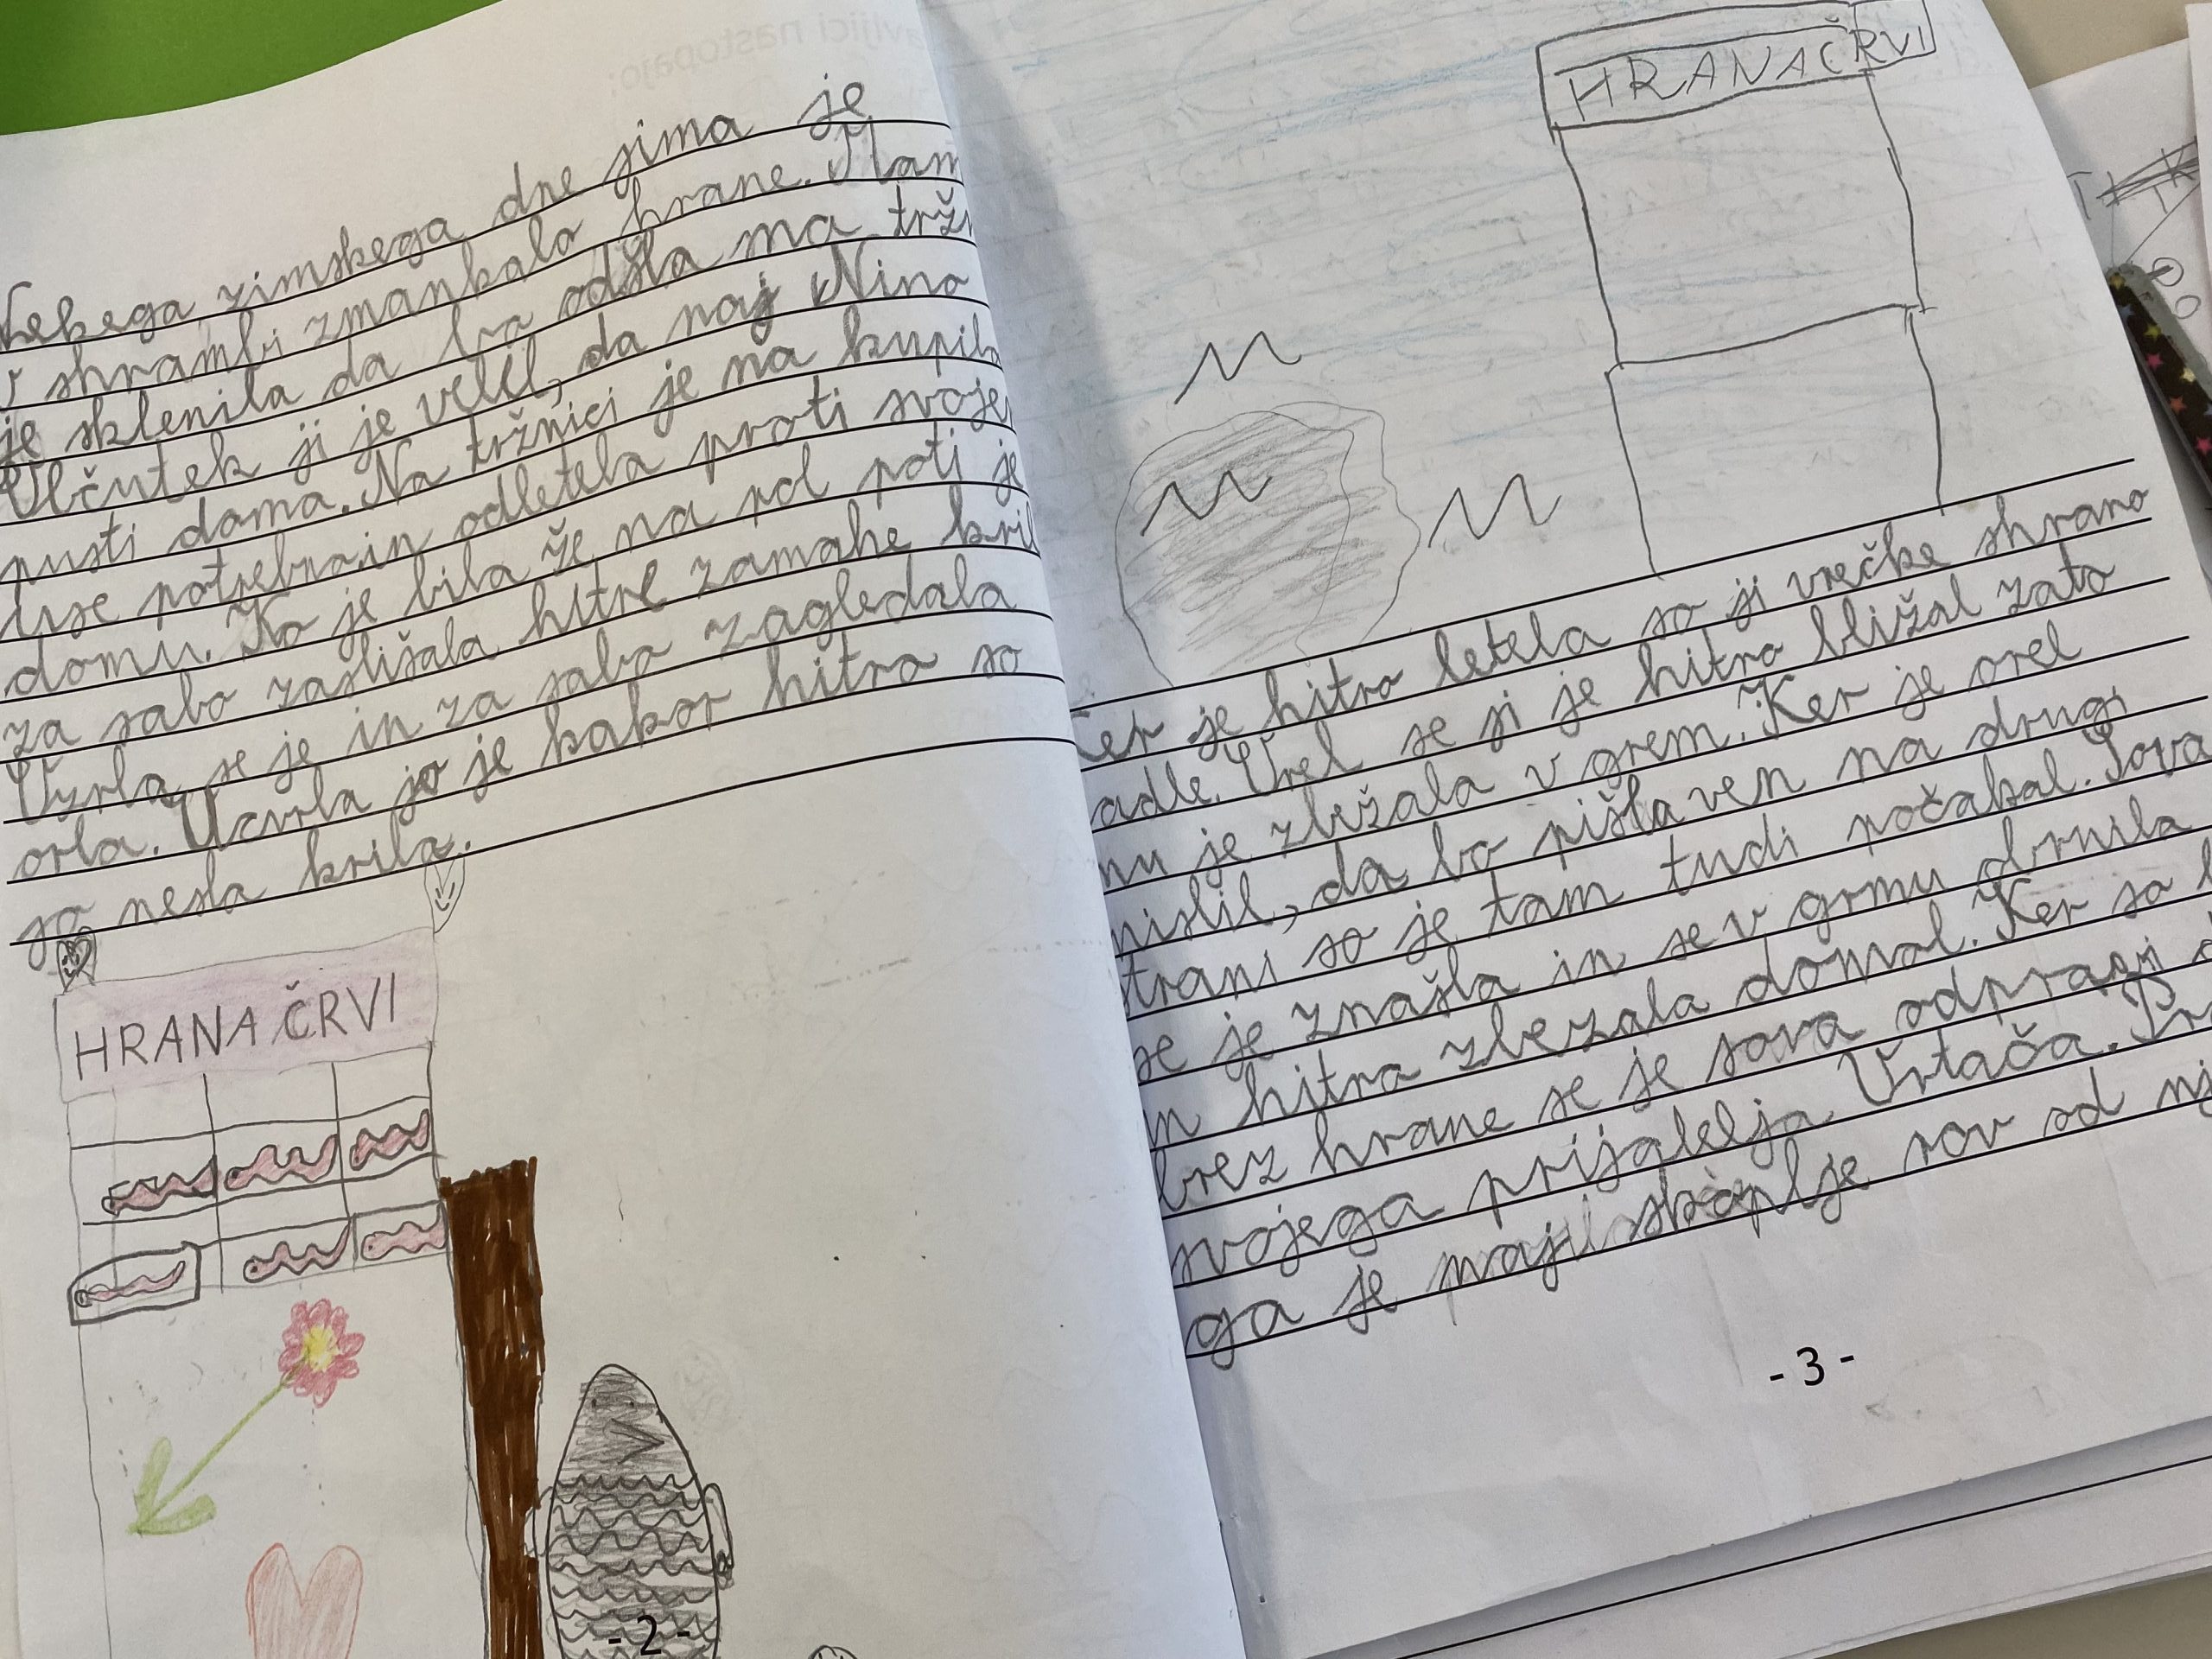 Nekega zimskega dne jima je
v shrambi zmankalo hrane. Mam
je sklenila da bo odšla na trž
Občutek ji je velel, da naj Nino
pusti doma. Na tržnici je na kupila
vse potrebno in odletela proti svoje
domu. Ko je bila že na pol poti je
za sabo zaslišala hitre zamahe kril
Ozrla se je in za sabo zagledala
orla. Ucvrla jo je kakor hitro so
jo nesla krila.
HRANA ČRVI
- 2 -
HRANA ČRVI
Ker je hitro letela so ji vrečke shrano
adle. Orel se ji je hitro bližal zato
mu je zbežala v grem. Ker je orel
mislil, da bo pišla ven na drugi
strani so je tam tudi počakal. Sova
se je znašla in se v grmu obrnila
in hitro zbezala domov. Ker so
brez hrane se je sova odpravi
svojega prijatelja Vrtača. Pr
ga je skoplje rov od nj
- 3 -
avljici nastopajo: